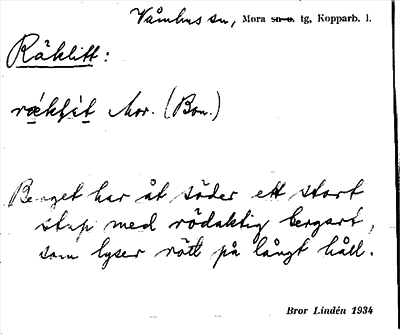 Våmhus sn, Mora sn o. tg, Kopparb. l.
Räklitt:
Mor. (Bon.)
Berget har åt söder ett stort
stup med rödaktig bergart,
som lyser rött på långt håll.
Bror Lindén 1934